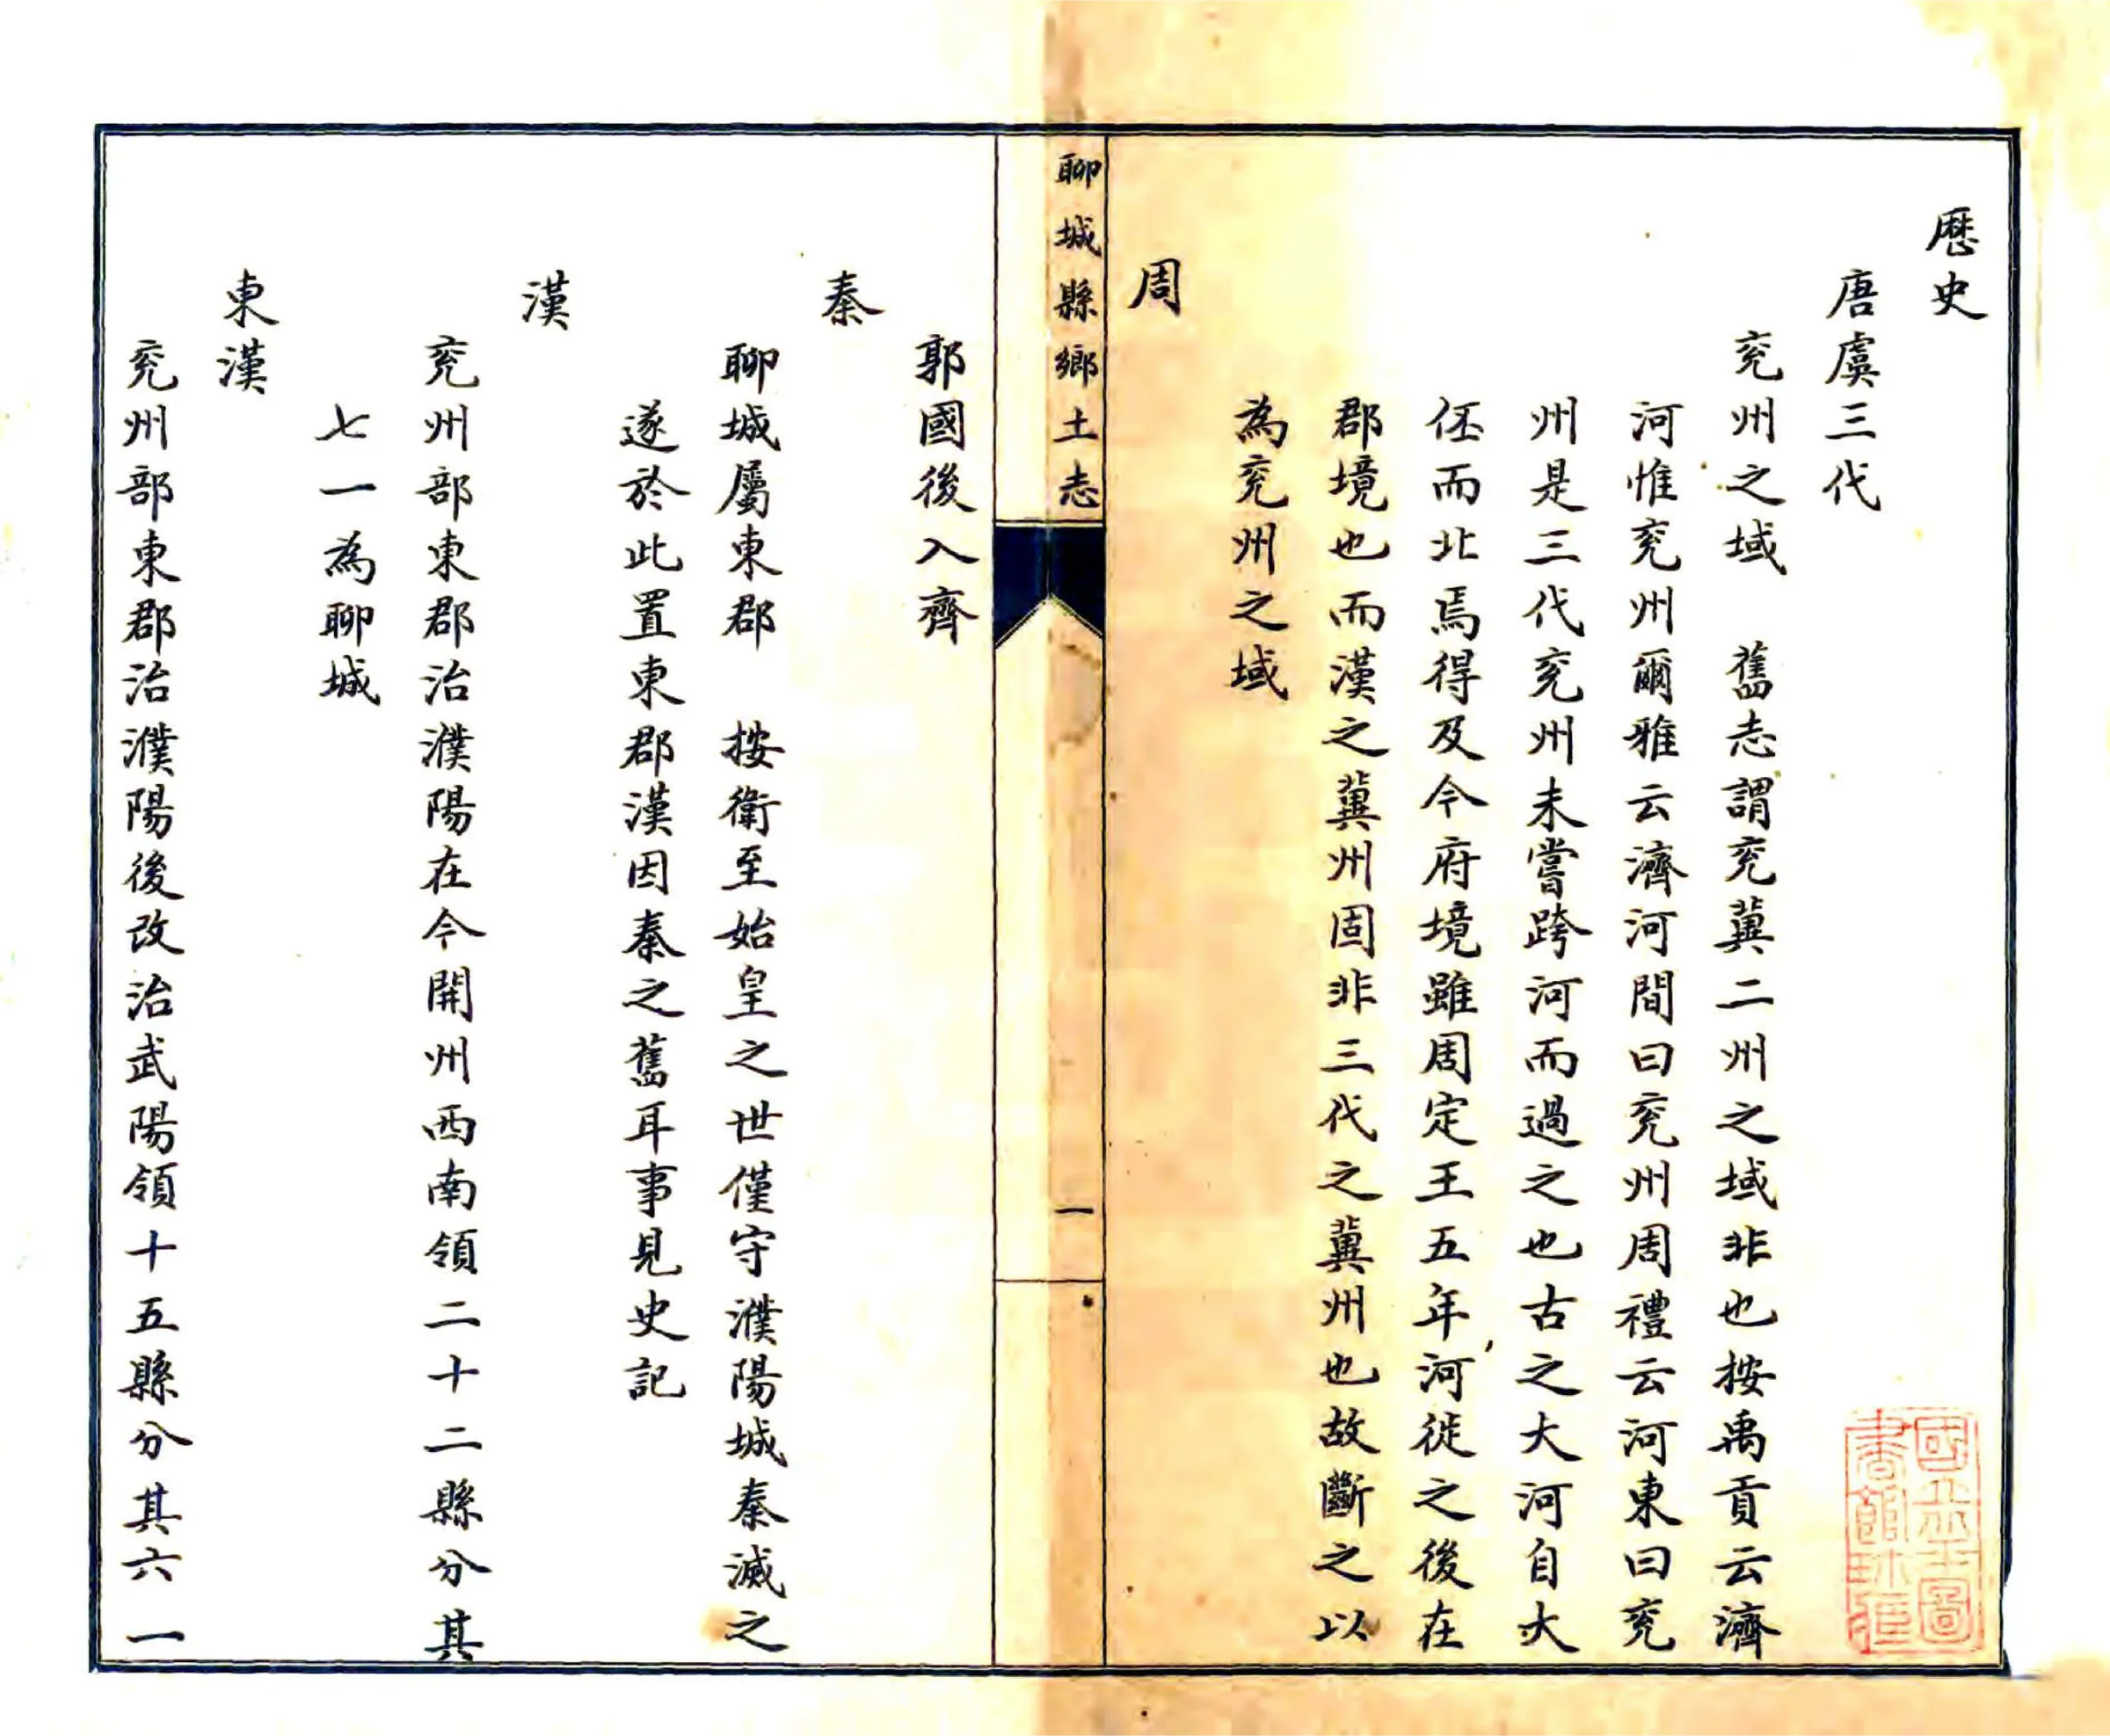 歷史
唐虞三代
兖州之域　舊志謂兖冀二州之域非也按禹貢云濟
河惟兖州爾雅云濟河間曰兖州周禮云河東曰兖
州是三代兖州未嘗跨河而過之也古之大河自大
伾而北焉得及今府境雖周定王五年河徙之後在
郡境也而漢之冀州固非三代之冀州也故斷之以
為兖州之域
周
聊城縣鄉土志
一
郭國後入齊
秦
聊城屬東郡　按衛至始皇之世僅守濮陽城秦滅之
遂於此置東郡漢因秦之舊耳事見史記
漢
兖州部東郡治濮陽在今開州西南領二十二縣分其
七一為聊城
東漢
兖州部東郡治濮陽後改治武陽領十五縣分其六一
國立北平圖
書館珍藏